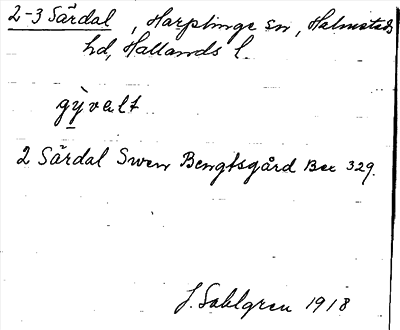 2-3 Särdal, Harplinge sn, Halmstads
hd, Hallands l.
gỳvalt
2 Särdal Swen Bengtsgård Bec 329.
J. Sahlgren 1918